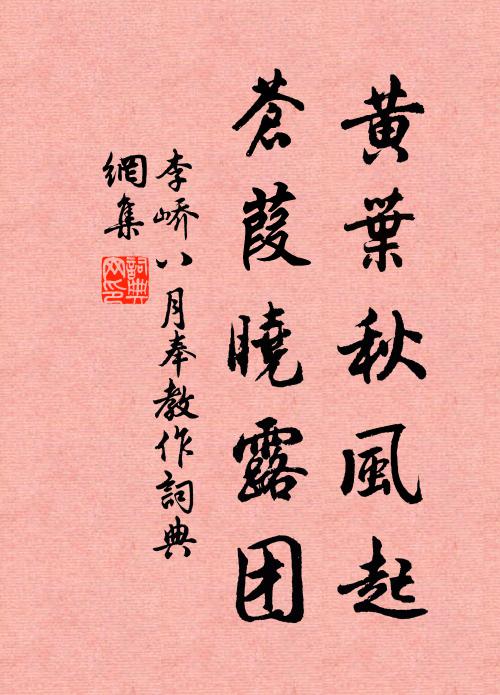 黄葉秋風起
蒼葭曉露团
李嶠八月奉教作詞典
網集
詞典網印